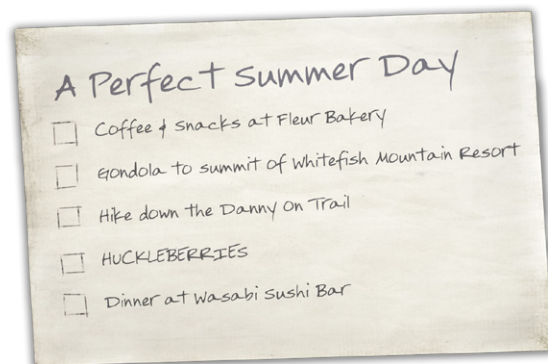 A Perfect Summer Day
Coffee & Snacks at Fleur Bakery
Gondola to summit of Whitefish Mountain Resort
Hike down the Danny On Trail
HUCKLEBERRIES
Dinner at Wasabi Sushi Bar